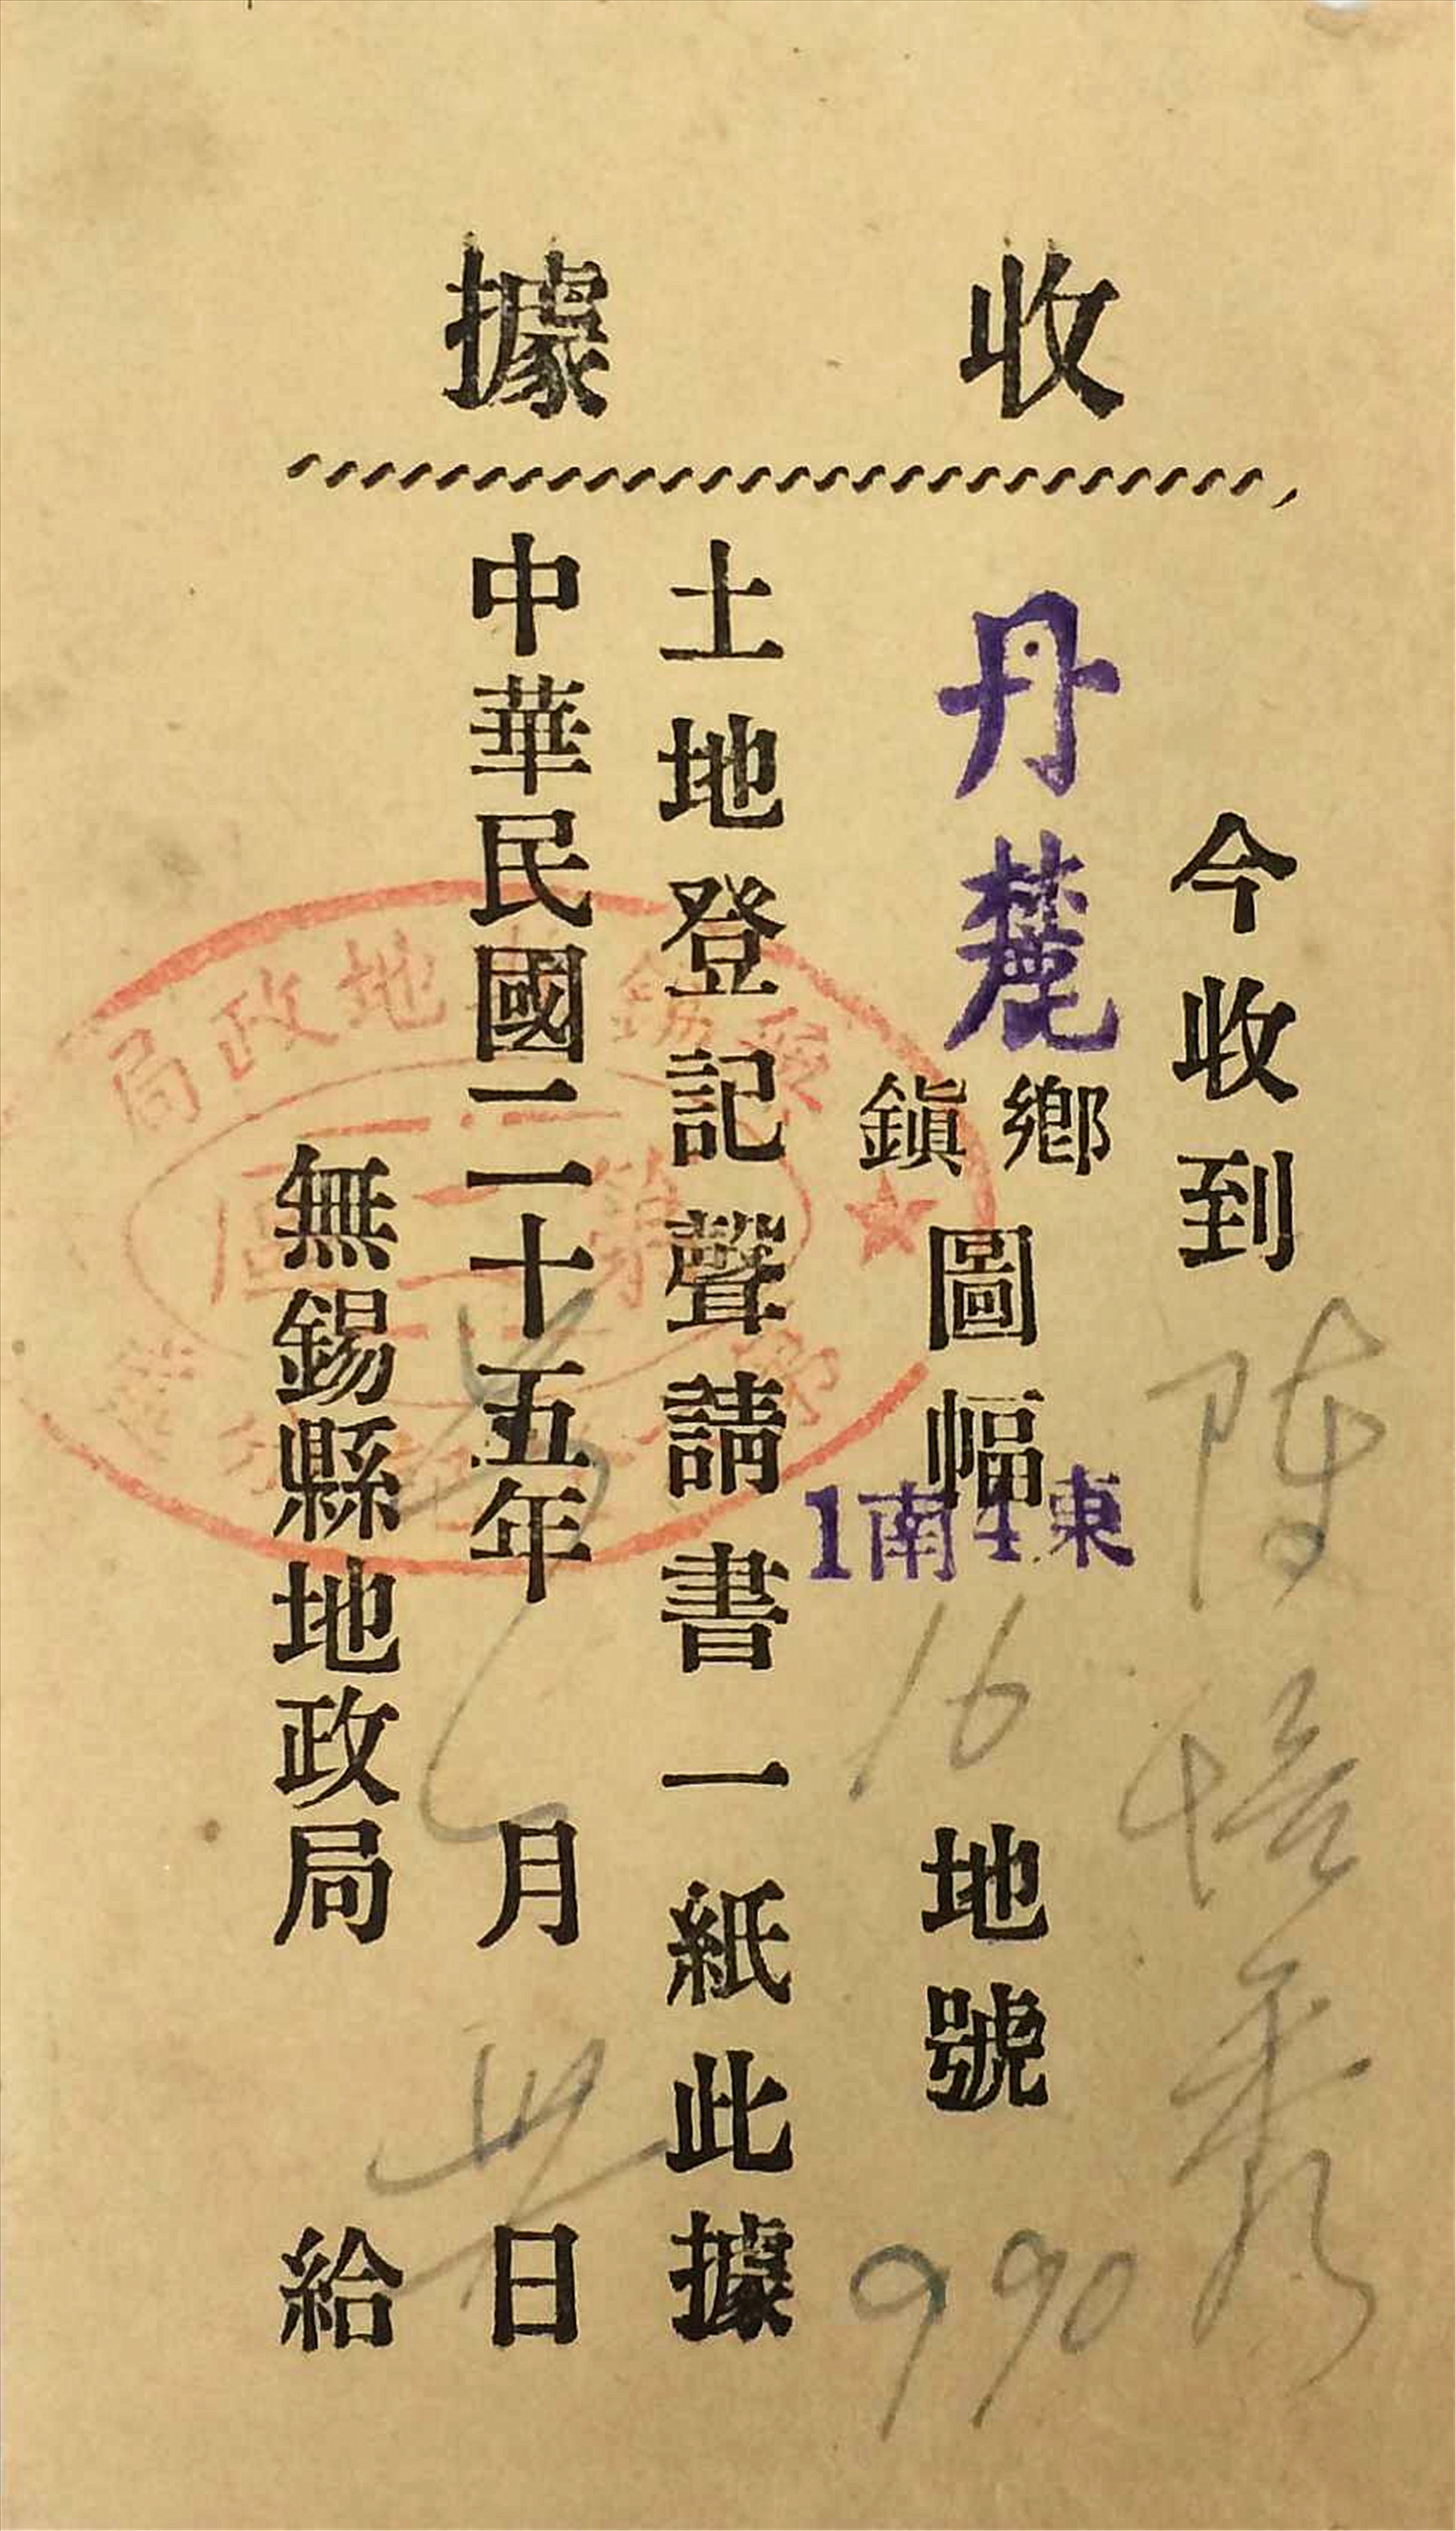 收據
今收到 陳培秀
丹麓鄉鎮圖幅東4南1 16 地號 990
土地登記聲請書一紙此據
中華民國二十五年 月 日
無錫縣地政局 給
無錫縣地政局
第二區